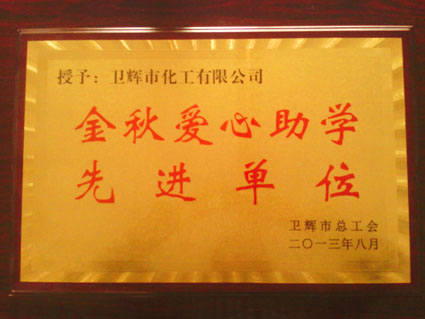 授予：卫辉市化工有限公司
金秋爱心助学
先进单位
卫辉市总工会
二〇一三年八月